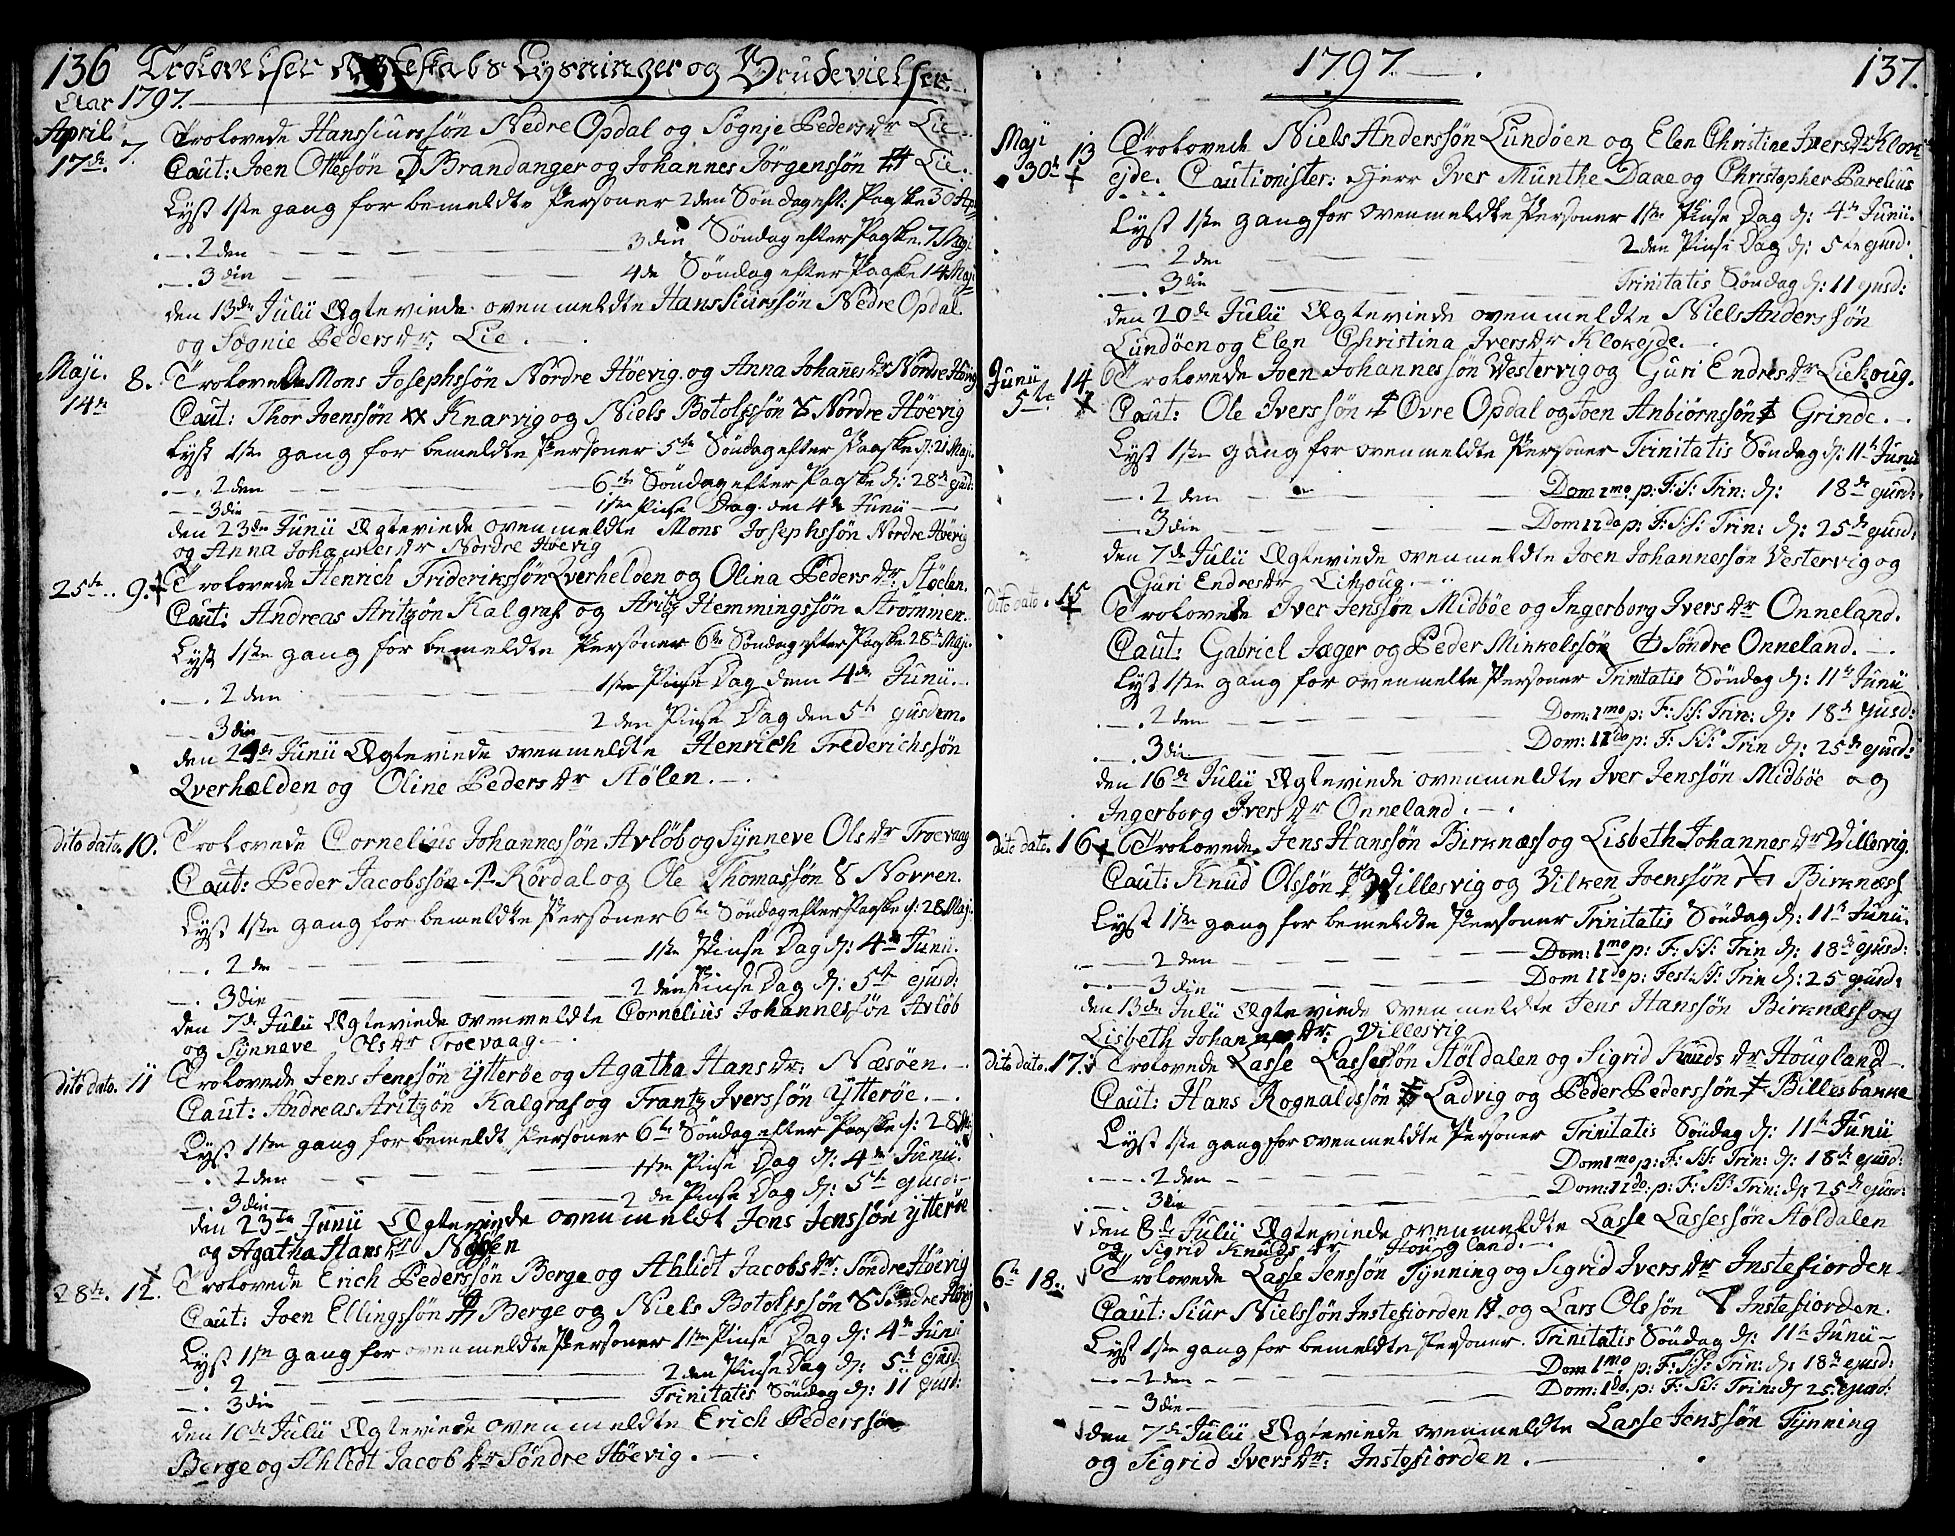 136 Trolovelser Ægteskabs Lysninger og Brudevielser.
Aar 1797.
April 17de. 7. Trolovede Hans Siurssön Nedre Opdal og Sögnje Pedersdr Lie.
Caut: Joen Ottessön Brandanger og Johannes Jörgenssön Lie.
Lyst 1ste gang for bemeldte Personer 2den Söndag eft: Paaske 30 Apr
2den 3die Söndag efter Paaske. 7 Maji
3die 4de Söndag efter Paaske 14 Maji
den 13de Julii Ægteviede ovenmeldte Hans Siurssön Nedre Opdal
og Sögnie Pedersdr: Lie.
Maji. 14de 8. Trolovede Mons Josephssön Nordre Höevig og Anna Johannesdr Nordre Höevig
Caut: Thor Joenssön Knarvig og Niels Botolfssön Nordre Höevig
Lyst 1ste gang for bemeldte Personer 5te Söndag efter Paaske d: 21 Maji
2den 6te Söndag efter Paaske d: 28de ejusd:
3die 1ste Pinse Dag den 4de Junii
den 23de Junii Ægteviede ovenmeldte Mons Josephssön Nordre Höevig
og Anna Johannesdr Nordre Höevig
25de. 9. Trolovede Henrich Frideriks­sön Qverhelden og Olina Pedersdr. Stöelen.
Caut: Andreas Aritzön Kalgraf og Aritz Hemmingssön Strömmen.
Lyst 1ste gang for bemeldte Personer 6te Söndag efter Paaske 28de Maji.
2den 1ste Pinse Dag den 4de Junii.
3die 2den Pinse Dag den 5te ejusdem.
den 24de Junii Ægteviede ovenmeldte Henrich Frederichssön
Qverhælden og Oline Pedersdr Stölen.
dito dato. 10. Trolovede Cornelius Johannessön Avlöb og Synneve Olsdr Troevaag
Caut: Peder Jacobssön Rördal og Ole Thomassön Norren.
Lyst 1ste gang for bemeldte Personer 6te Söndag efter Paaske d: 28 Maj.
2den 1ste Pinse Dag d: 4de Junii.
3die 2den Pinse Dag d: 5te ejusd:
den 7de Julii Ægteviede ovenmeldte Cornelius Johannessön Avlöb
og Synneve Olsdr Troevaag
dito dato. 11 Trolovede Jens Jenssön Ytteröe og Agatha Hansdr: Næsöen.
Caut: Andreas Aritzön Kalgraf og Frantz Iverssön Ytteröe.
Lyst 1ste gang for bemeldt Personer 6te Söndag efter Paaske d: 28 Maj
2den 1ste Pinse Dag d: 4de Junii.
3die 2den Pinse Dag d: 5te ejusd:
den 23de Junii Ægteviede ovenmeldt Jens Jenssön Ytteröe
og Agatha Hansdr Næsöen
28de. 12. Trolovede Erich Pederssön Berge og Ahlidt Jacobsdr: Söndre Höevig
Caut: Joen Ellingssön Berge og Niels Botolfssön Söndre Höevig
Lyst 1ste gang for ovenmeldte Personer 1ste Pinse Dag d: 4de Junii
2 2den Pinse Dag d: 5te ejusd:
3die Trinitatis Söndag d: 11 ejusd:
den 10de Julii Ægteviede ovenmeldte Erich Pederssön
Berge og Ahlidt Jacobdr Söndre Höevig.
1797. 137.
Maji 30te 13 Trolovede Niels Anderssön Lundöen og Elen Christine Iversdr Klok
ejde. Cautionister: Herr Iver Munthe Daae og Christopher Parelius
Lyst 1ste gang for ovenmeldte Personer 1ste Pinse Dag d: 4de Junii.
2den 2den Pinse Dag d: 5te ejusd:
3die Trinitatis Söndag d: 11 ejusd:
den 20de Julii Ægteviede ovenmeldte Niels Anderssön
Lundöen og Elen Christina Iversdr Klokejde.
Junii 5te. 14 Trolovede Joen Johannessön Vestervig og Guri Endresdr Liekoug.
Caut: Ole Iverssön Övre Opdal og Joen Anbiörnssön Grinde.
Lyst 1ste gang for ovenmeldte Personer Trinitatis Söndag d: 11te Junii
2den Dom 1mo p: F: S: Trin: d: 18de ejusd:
3die Dom 11do p: F: S: Trin: d: 25de ejusd:
den 7de Julii Ægteviede ovenmeldte Joen Johannessön Vestervig og
Guri Endresdr Likoug.
dito dato. 15 Trolovede Iver Jenssön Midböe og Ingerborg Iversdr Onneland.
Caut: Gabriel Jæger og Peder Minkelssön Söndre Onneland.
Lyst 1ste gang for ovenmelte Personer Trinitatis Söndag d: 11te Junii
2den Dom: 1mo p: F: S: Trin: d: 18de ejusd:
3die Dom: 11do p: F: S: Trin d: 25de ejusd:
den 16de Julii Ægteviede ovenmeldte Iver Jenssön Midböe og
Ingerborg Iversdr Onneland.
dito dato. 16 Trolovede Jens Hanssön Birknæss og Lisbeth Johannesdr Villesvig.
Caut: Knud Olssön Willesvig og Vilken Joenssön Birknæss
Lyst 1ste gang for bemeldte Personer Trinitatis Söndag d: 11te Junii.
2den Dom: 1mo p: F: S: Trin d: 18de ejusd:
3die Dom 11do p: Fest: S: Trin d: 25 ejusd:
den 13de Julii Ægteviede ovenmeldte Jens Hanssön Birknæss og
Lisbeth Johannesdr. Villesvig
dito dato. 17. Trolovede Lasse Lassessön Stöldalen og Sigrid Knudsdr Hougland
Caut: Hans Rognaldssön Ladvig og Peder Pederssön Billesbakke
Lyst 1ste gang for ovenmeldte Personer Trinitatis Söndag d: 11te Junii
2den Dom 1mo p: F: S: Trin: d: 18de ejusd:
3die Dom: 11do. p: F: S: Trin: d: 25de ejusd:
den 8de Julii Ægteviede ovenmeldte Lasse Lassessön Stöldalen
og Sigrid Knudsdr Hougland.
6te 18. Trolovede Lasse Jenssön Tynning og Sigrid Iversdr Instefiorden
Caut: Siur Nielssön Instefiorden og Lars Olssön Instefiorden.
Lyst 1ste gang for bemeldte Personer. Trinitatis Söndag d: 11te Junii
2den Dom 1mo p: F: S: Trin: d: 18de ejusd:
3die Dom: 1do. p: F: S: Trin: d 25 ejusd:
den 7de Julii Ægteviede ovenmeldte Lasse Jenssön Tynning
og Sigrid Iversdr: Instefiorden.